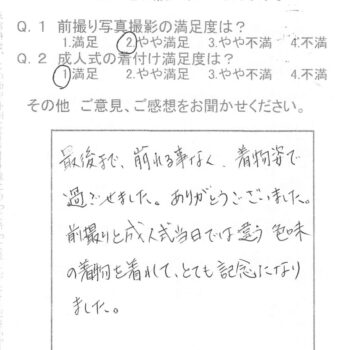 Q.1 前撮り写真撮影の満足度は？
1.満足 2.やや満足 3.やや不満 4.不満
Q.2 成人式の着付け満足度は？
1.満足 2.やや満足 3.やや不満 4.不満
その他 ご意見、ご感想をお聞かせください。
最後まで、崩れる事なく、着物姿で
過ごせました。ありがとうございました。
前撮りと成人式当日では違う色味
の着物を着れて、とても記念になり
ました。